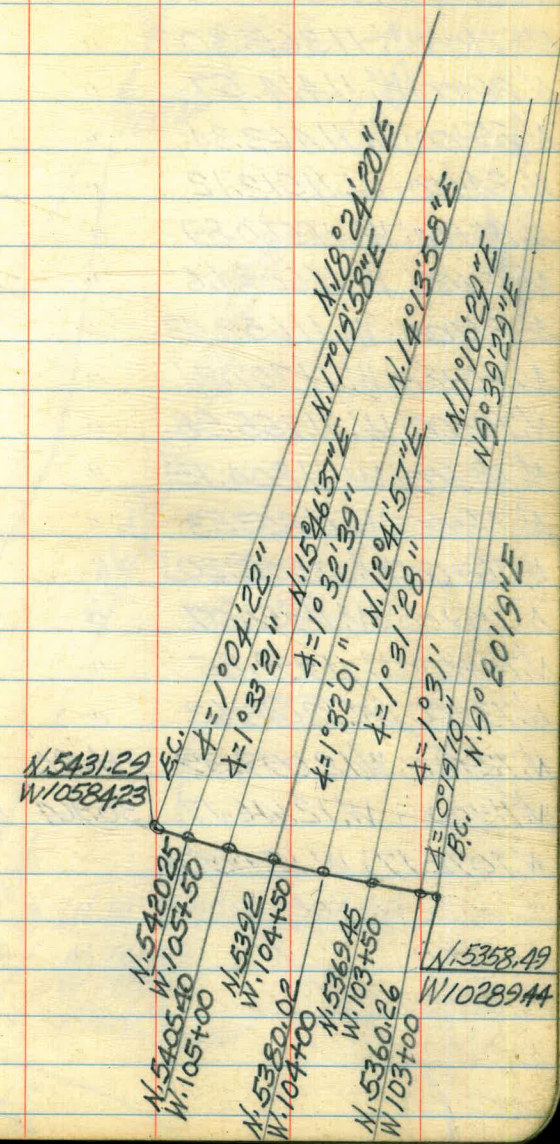 N.18°24'20"E
N.17°19'58"E
N.15°46'37"E
N.14°13'58"E
N.12°41'57"E
N.11°10'29"E
N9°39'29"E
N.9°20'19"E
E.C.
∡=1°04'22"
∡=1°33'21"
∡=1°32'39"
∡=1°32'01"
∡=1°31'28"
∡=1°31'
∡=0°19'10"
B.C.
N.5431.29
W.1058423
N.542025
W.105+50
N.5405.40
W.105+00
N.5392
W.104+50
N.5380.02
W.104+00
N.536945
W.103+50
N.5360.26
W103+00
N.5358.49
W1028944